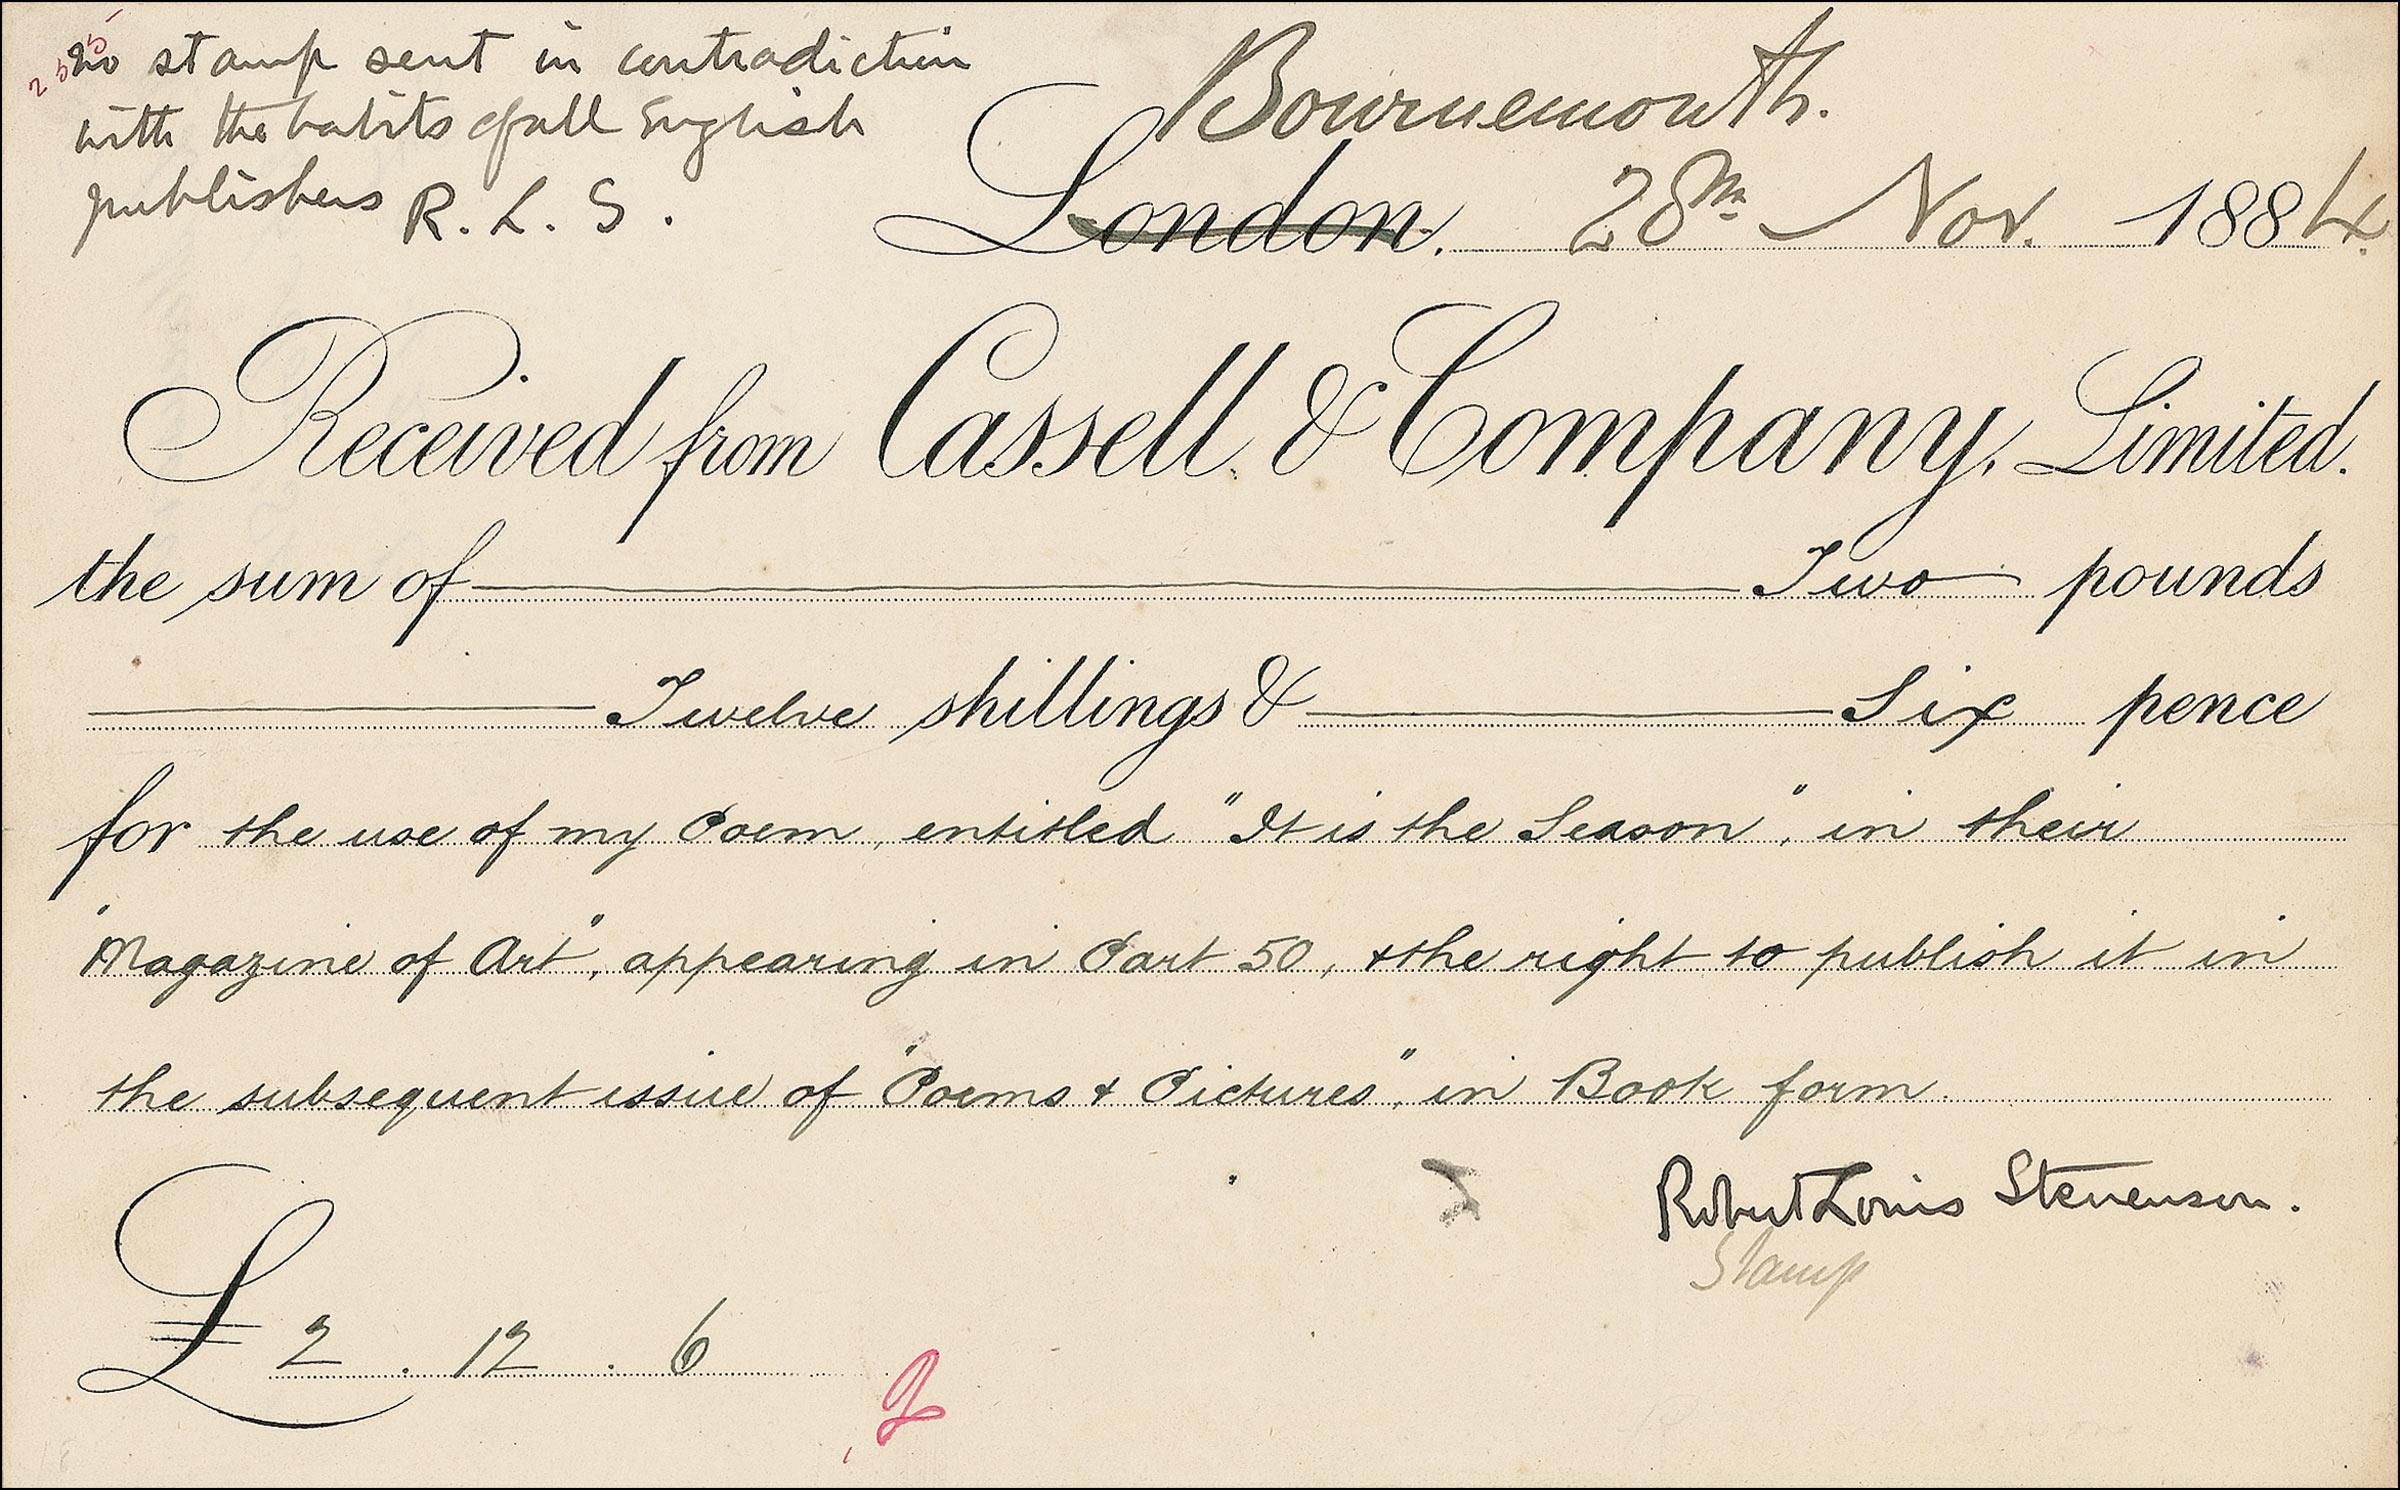 No stamp sent in contradiction
with the habits of all English
publishers R. L. S.
Bournemouth.
London. 28th Nov. 1884.
Received from Cassell & Company, Limited.
the sum of Two pounds
Twelve shillings & Six pence
for the use of my Poem, entitled "It is the Season", in their
"Magazine of Art", appearing in Part 50, & the right to publish it in
the subsequent issue of "Poems & Pictures", in Book form.
Robert Louis Stevenson.
Stamp
£ 2 . 12 . 6